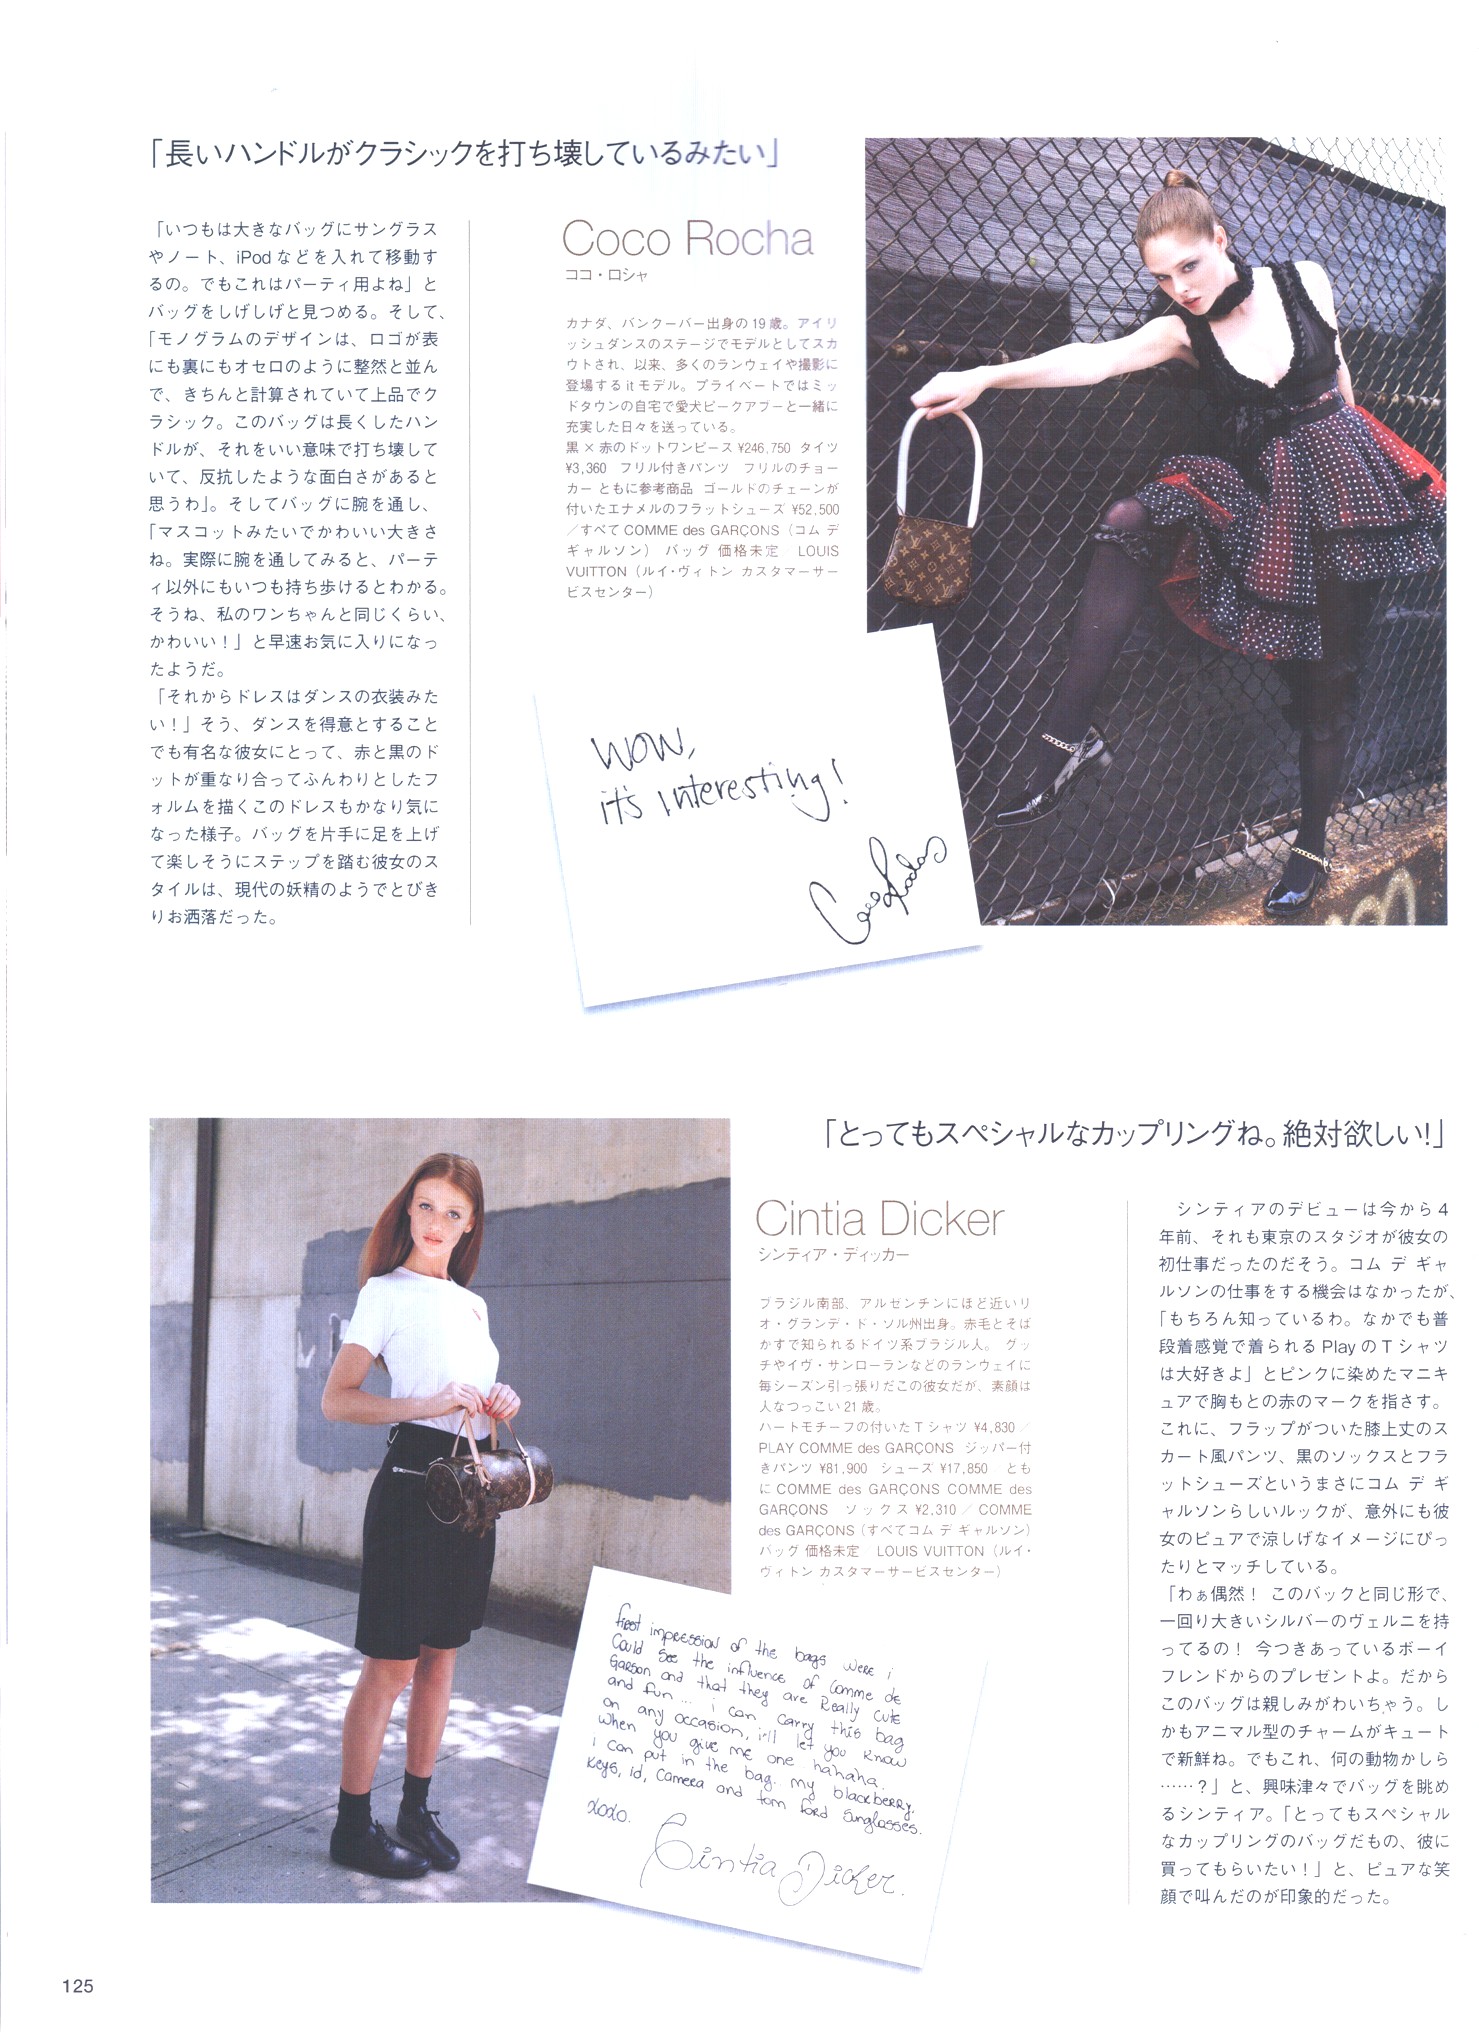 「長いハンドルがクラシックを打ち壊しているみたい」
「いつもは大きなバッグにサングラス
やノート、iPodなどを入れて移動す
るの。でもこれはパーティ用よね」と
バッグをしげしげと見つめる。そして、
「モノグラムのデザインは、ロゴが表
にも裏にもオセロのように整然と並ん
で、きちんと計算されていて上品でク
ラシック。このバッグは長くしたハン
ドルが、それをいい意味で打ち壊して
いて、反抗したような面白さがあると
思うわ」。そしてバッグに腕を通し、
「マスコットみたいでかわいい大きさ
ね。実際に腕を通してみると、パーテ
ィ以外にもいつも持ち歩けるとわかる。
そうね、私のワンちゃんと同じくらい、
かわいい！」と早速お気に入りになっ
たようだ。
「それからドレスはダンスの衣装みた
い！」そう、ダンスを得意とすること
でも有名な彼女にとって、赤と黒のド
ットが重なり合ってふんわりとしたフ
ォルムを描くこのドレスもかなり気に
なった様子。バッグを片手に足を上げ
て楽しそうにステップを踏む彼女のス
タイルは、現代の妖精のようでとびき
りお洒落だった。
Coco Rocha
ココ・ロシャ
カナダ、バンクーバー出身の19歳。アイリ
ッシュダンスのステージでモデルとしてスカ
ウトされ、以来、多くのランウェイや撮影に
登場するitモデル。プライベートではミッ
ドタウンの自宅で愛犬ピークアブーと一緒に
充実した日々を送っている。
黒×赤のドットワンピース ¥246,750 タイツ
¥3,360 フリル付きパンツ フリルのチョー
カー ともに参考商品 ゴールドのチェーンが
付いたエナメルのフラットシューズ ¥52,500
／すべてCOMME des GARÇONS（コム デ
ギャルソン） バッグ 価格未定／LOUIS
VUITTON（ルイ・ヴィトン カスタマーサー
ビスセンター）
WOW,
it's interesting!
Coco Rocha
「とってもスペシャルなカップリングね。絶対欲しい！」
Cintia Dicker
シンティア・ディッカー
ブラジル南部、アルゼンチンにほど近いリ
オ・グランデ・ド・ソル州出身。赤毛とそば
かすで知られるドイツ系ブラジル人。グッ
チやイヴ・サンローランなどのランウェイに
毎シーズン引っ張りだこの彼女だが、素顔は
人なつっこい21歳。
ハートモチーフの付いたTシャツ ¥4,830／
PLAY COMME des GARÇONS ジッパー付
きパンツ ¥81,900 シューズ ¥17,850／とも
にCOMME des GARÇONS COMME des
GARÇONS ソックス ¥2,310／COMME
des GARÇONS（すべてコム デ ギャルソン）
バッグ 価格未定／LOUIS VUITTON（ルイ・
ヴィトン カスタマーサービスセンター）
シンティアのデビューは今から4
年前、それも東京のスタジオが彼女の
初仕事だったのだそう。コム デ ギャ
ルソンの仕事をする機会はなかったが、
「もちろん知っているわ。なかでも普
段着感覚で着られるPlayのTシャツ
は大好きよ」とピンクに染めたマニキ
ュアで胸もとの赤のマークを指さす。
これに、フラップがついた膝上丈のス
カート風パンツ、黒のソックスとフラ
ットシューズというまさにコム デ ギ
ャルソンらしいルックが、意外にも彼
女のピュアで涼しげなイメージにぴっ
たりとマッチしている。
「わぁ偶然！ このバックと同じ形で、
一回り大きいシルバーのヴェルニを持
ってるの！ 今つきあっているボーイ
フレンドからのプレゼントよ。だから
このバッグは親しみがわいちゃう。し
かもアニマル型のチャームがキュート
で新鮮ね。でもこれ、何の動物かしら
……？」と、興味津々でバッグを眺め
るシンティア。「とってもスペシャル
なカップリングのバッグだもの、彼に
買ってもらいたい！」と、ピュアな笑
顔で叫んだのが印象的だった。
first impression of the bags were i
Could see the influence of Comme de
Garson and that they are Really cute
and fun... i can carry this bag
on any occasion, i'll let you know
when you give me one hahaha.
i can put in the bag.. my blackberry,
keys, id, camera and tom ford sunglasses.
xoxo.
Cintia Dicker.
125